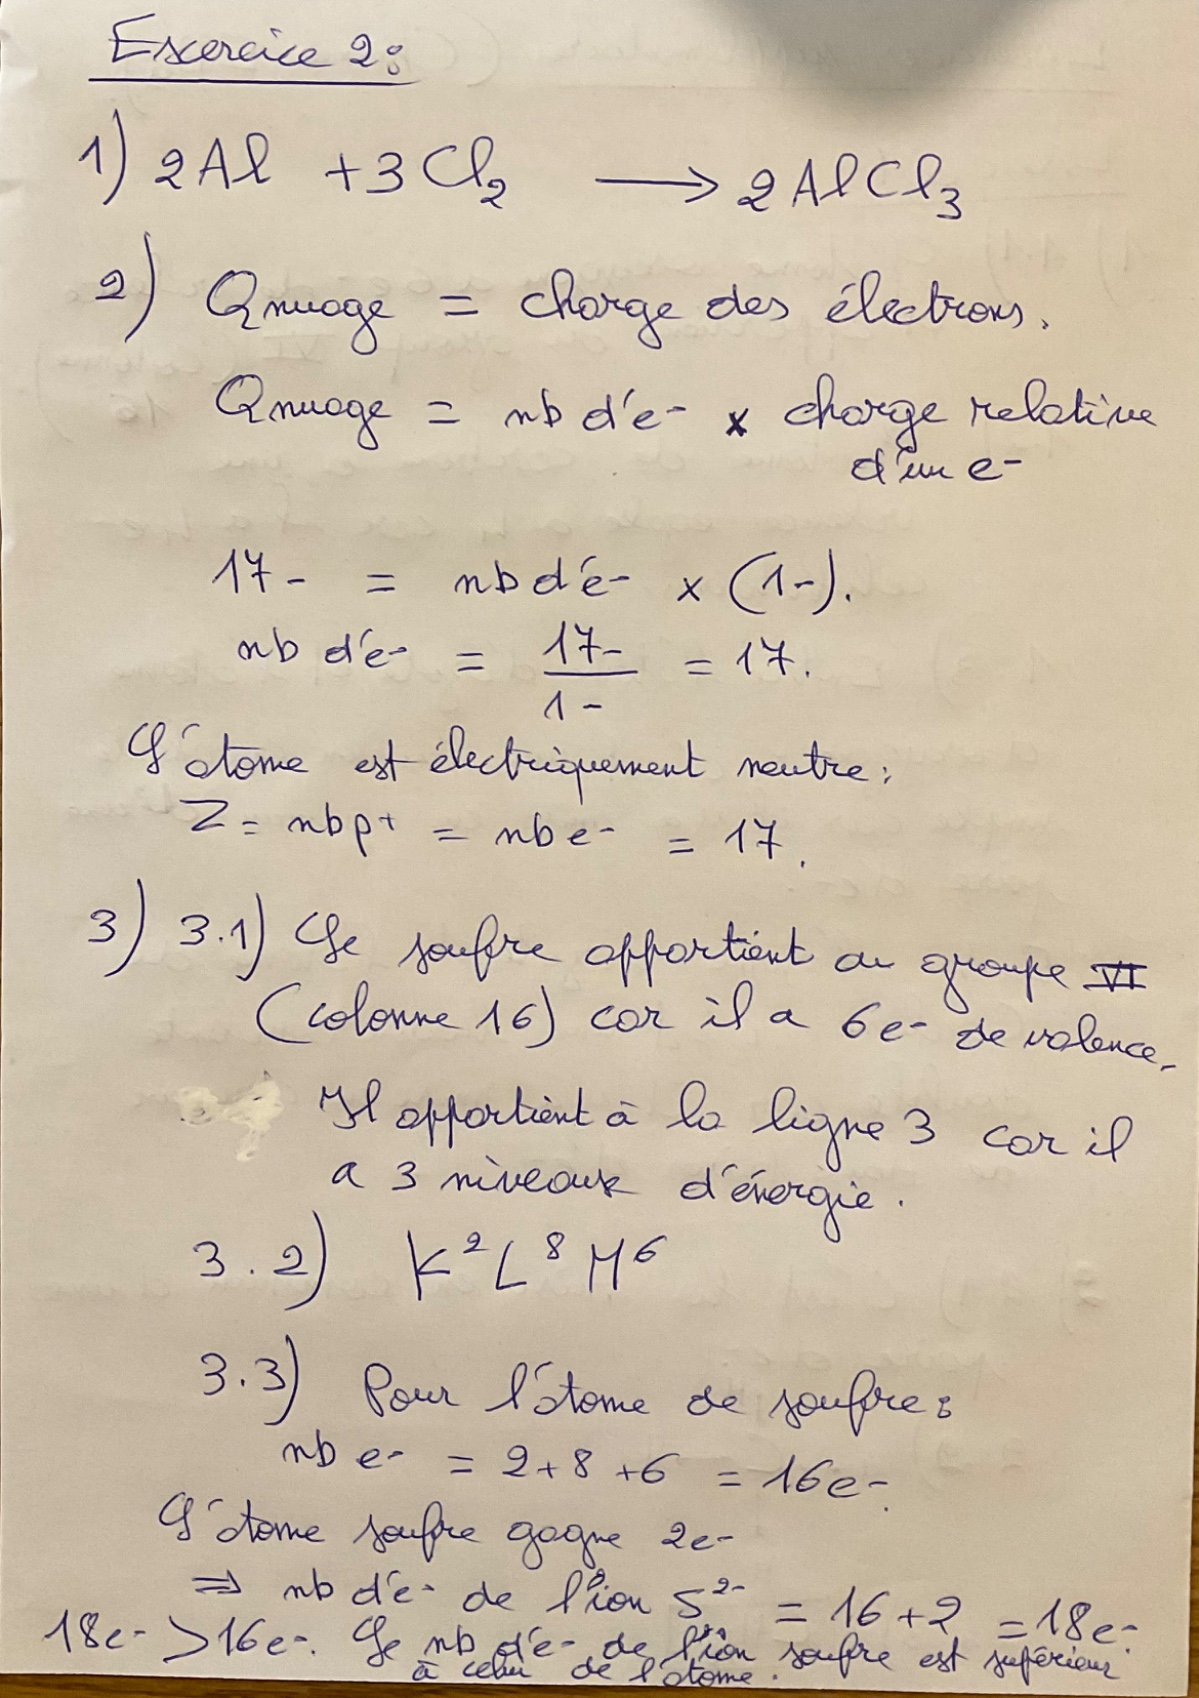 Exercice 2:
1) 2Al + 3Cl₂ → 2AlCl₃
2) Qnuage = charge des électrons.
Qnuage = nb d'é- × charge relative
d'un e-
17- = nb d'é- × (1-).
nb d'é- = 17-/1- = 17.
L'atome est électriquement neutre:
Z = nb p+ = nb e- = 17.
3) 3.1) Le soufre appartient au groupe VI
(colonne 16) car il a 6e- de valence.
Il appartient à la ligne 3 car il
a 3 niveaux d'énergie.
3.2) K² L⁸ M⁶
3.3) Pour l'atome de soufre:
nb e- = 2+8+6 = 16e-.
L'atome soufre gagne 2e-
⇒ nb d'é- de l'ion S²⁻ = 16+2 = 18e-
18e- > 16e-. Le nb d'é- de l'ion soufre est supérieur
à celui de l'atome.